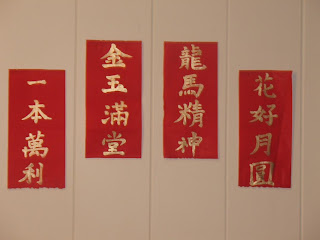 一本萬利
金玉滿堂
龍馬精神
花好月圓